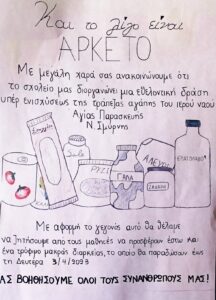 Και το λίγο είναι
ΑΡΚΕΤΟ
Με μεγάλη χαρά σας ανακοινώνουμε ότι
το σχολείο μας διοργανώνει μια εθελοντική δράση
υπέρ ενισχύσεως της τράπεζας αγάπης του ιερού ναού
Αγίας Παρασκευής
Ν. Σμύρνης
ΡΥΖΙ
ΓΑΛΑ
ΑΛΕΥΡΙ
ΕΛΑΙΟΛΑΔΟ
Με αφορμή το γεγονός αυτό θα θέλαμε
να ζητήσουμε από τους μαθητές να προσφέρουν έστω και
ένα τρόφιμο μακράς διαρκείας, το οποίο θα παραδώσουν έως
τη Δευτέρα 3/4/2023
ΑΣ ΒΟΗΘΗΣΟΥΜΕ ΟΛΟΙ ΤΟΥΣ ΣΥΝΑΝΘΡΩΠΟΥΣ ΜΑΣ!